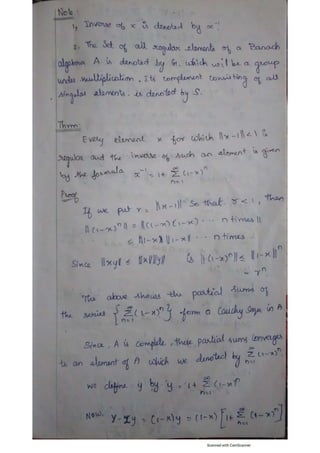 Note :
1, Inverse of x is denoted by x⁻¹
2. The Set of all regular elements of a Banach
algebra A is denoted by G. which will be a group
under multiplication. Its complement consisting of all
singular elements. is denoted by S.
Thrm:
Every element x for which ||x-1|| < 1 is
regular and the inverse of such an element is given
by the formula x⁻¹ = 1 + ∞ Σ n=1 (1-x)ⁿ
Proof
If we put r = ||x-1|| So that r < 1, Then
||(1-x)ⁿ|| = ||(1-x)(1-x) ... n times||
≤ ||1-x|| ||1-x|| ... n times.
Since ||xy|| ≤ ||x||||y|| is ||(1-x)ⁿ|| ≤ ||1-x||ⁿ
= rⁿ
The above shows the partial sums of
the series { ∞ Σ n=1 (1-x)ⁿ } form a Cauchy seqn in A
Since, A is complete, these partial sums converges
to an element of A which we denoted by ∞ Σ n=1 (1-x)ⁿ
we define y by y = 1 + ∞ Σ n=1 (1-x)ⁿ
Now, y-xy = (1-x)y = (1-x) [1 + ∞ Σ n=1 (1-x)ⁿ]
Scanned with CamScanner